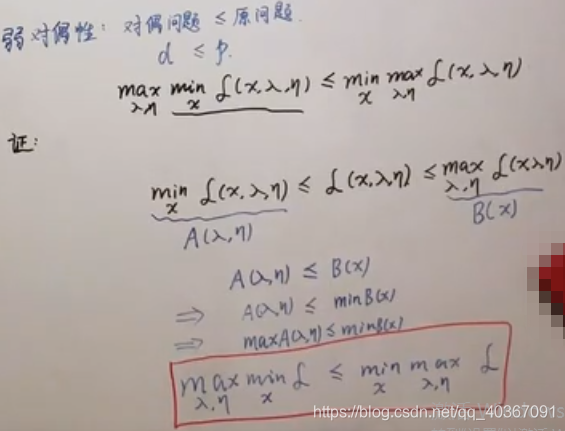 弱对偶性: 对偶问题 ≤ 原问题.
d ≤ p.
max λ,η min x L(x,λ,η) ≤ min x max λ,η L(x,λ,η)
证:
min x L(x,λ,η) ≤ L(x,λ,η) ≤ max λ,η L(x,λ,η)
A(λ,η) B(x)
A(λ,η) ≤ B(x)
⇒ A(λ,η) ≤ min B(x)
⇒ max A(λ,η) ≤ min B(x)
max λ,η min x L ≤ min x max λ,η L
https://blog.csdn.net/qq_40367091